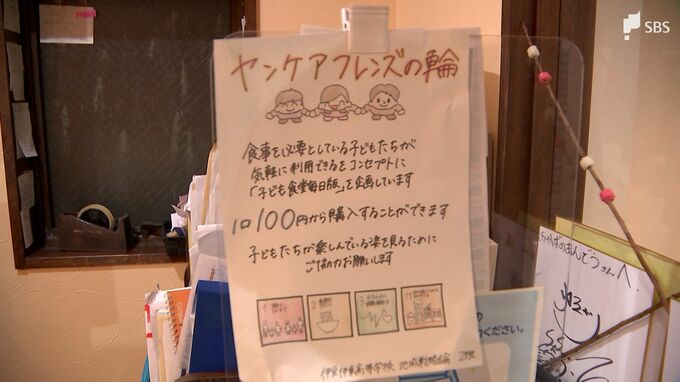 SBS
ヤンケアフレンズの輪
食事を必要としている子どもたちが
気軽に利用できるをコンセプトに
「子ども食堂毎日版」を企画しています
1口100円から購入することができます
子どもたちが楽しんでいる姿を見るために
ご協力お願いします
伊豆伊東高等学校
ください。